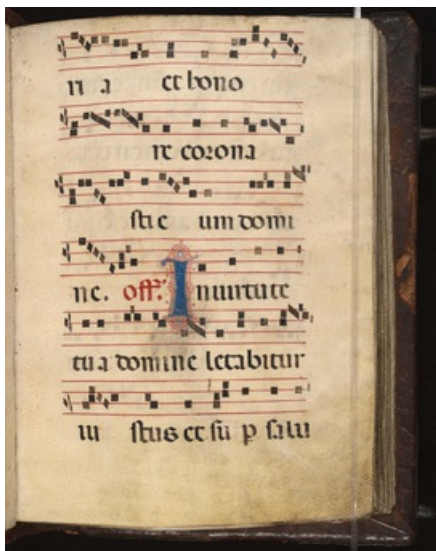 ri a et bono
re corona
sti e um domi
ne. off. In uirtute
tu a domine letabitur
iu stus et su p salu